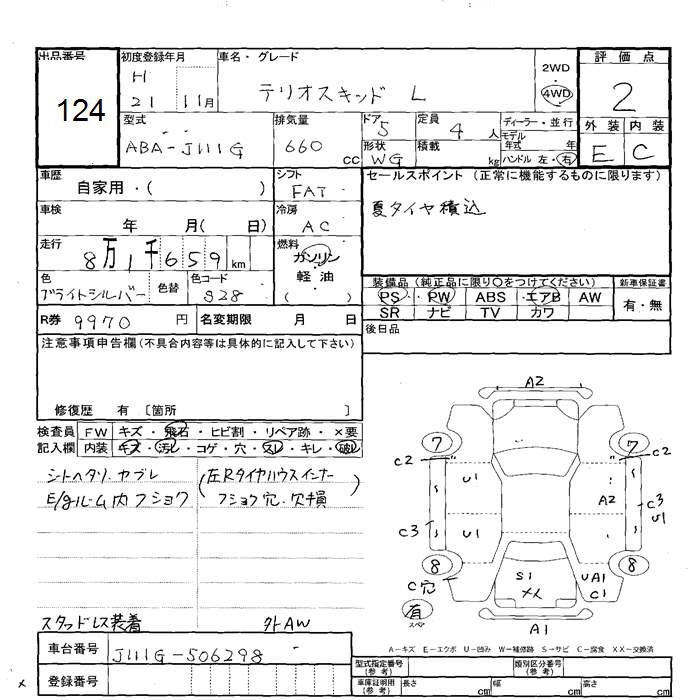 出品番号 初度登録年月 車名・グレード 評価点
124
H 21 11月
テリオスキッド L
2WD
4WD
2
型式 排気量 ドア 定員 ディーラー・並行 外装 内装
ABA-J111G 660 cc 5 4人 モデル
形状 積載 年式 年
WG kg ハンドル 左・右
E C
車歴 シフト セールスポイント (正常に機能するものに限ります)
自家用・( ) FAT
夏タイヤ積込
車検 冷房
年 月( 日) AC
走行 燃料
8万1千659km ガソリン
軽油
( )
色 色替 色コード
ブライトシルバー S28
装備品 (純正品に限り○をつけてください) 新車保証書
PS・PW ABS・エアB AW 有・無
SR ナビ TV カワ
R券 9970 円 名変期限 月 日
後日品
注意事項申告欄(不具合内容等は具体的に記入して下さい)
修復歴 有 [箇所 ]
検査員 FW キズ・飛石・ヒビ割・リペア跡・×要
記入欄 内装 キズ・汚レ・コゲ・穴・スレ・キレ・破レ
シートヘタリ.ヤブレ
E/gルーム内フショク
(左Rタイヤハウスインナー
フショク穴.欠損
スタッドレス装着 外AW
A2
7 7
C2 C2
U1 A2
C3 U1 C3
U1
8 8
C穴 S1 UA1
XX C1
有
スペア
A1
A-キズ E-エクボ U-凹み W-補修跡 S-サビ C-腐食 XX-交換済
車台番号 J111G-506298
登録番号
型式指定番号(参考) 類別区分番号(参考)
車庫証明用(参考) 長さ cm 幅 cm 高さ cm
x